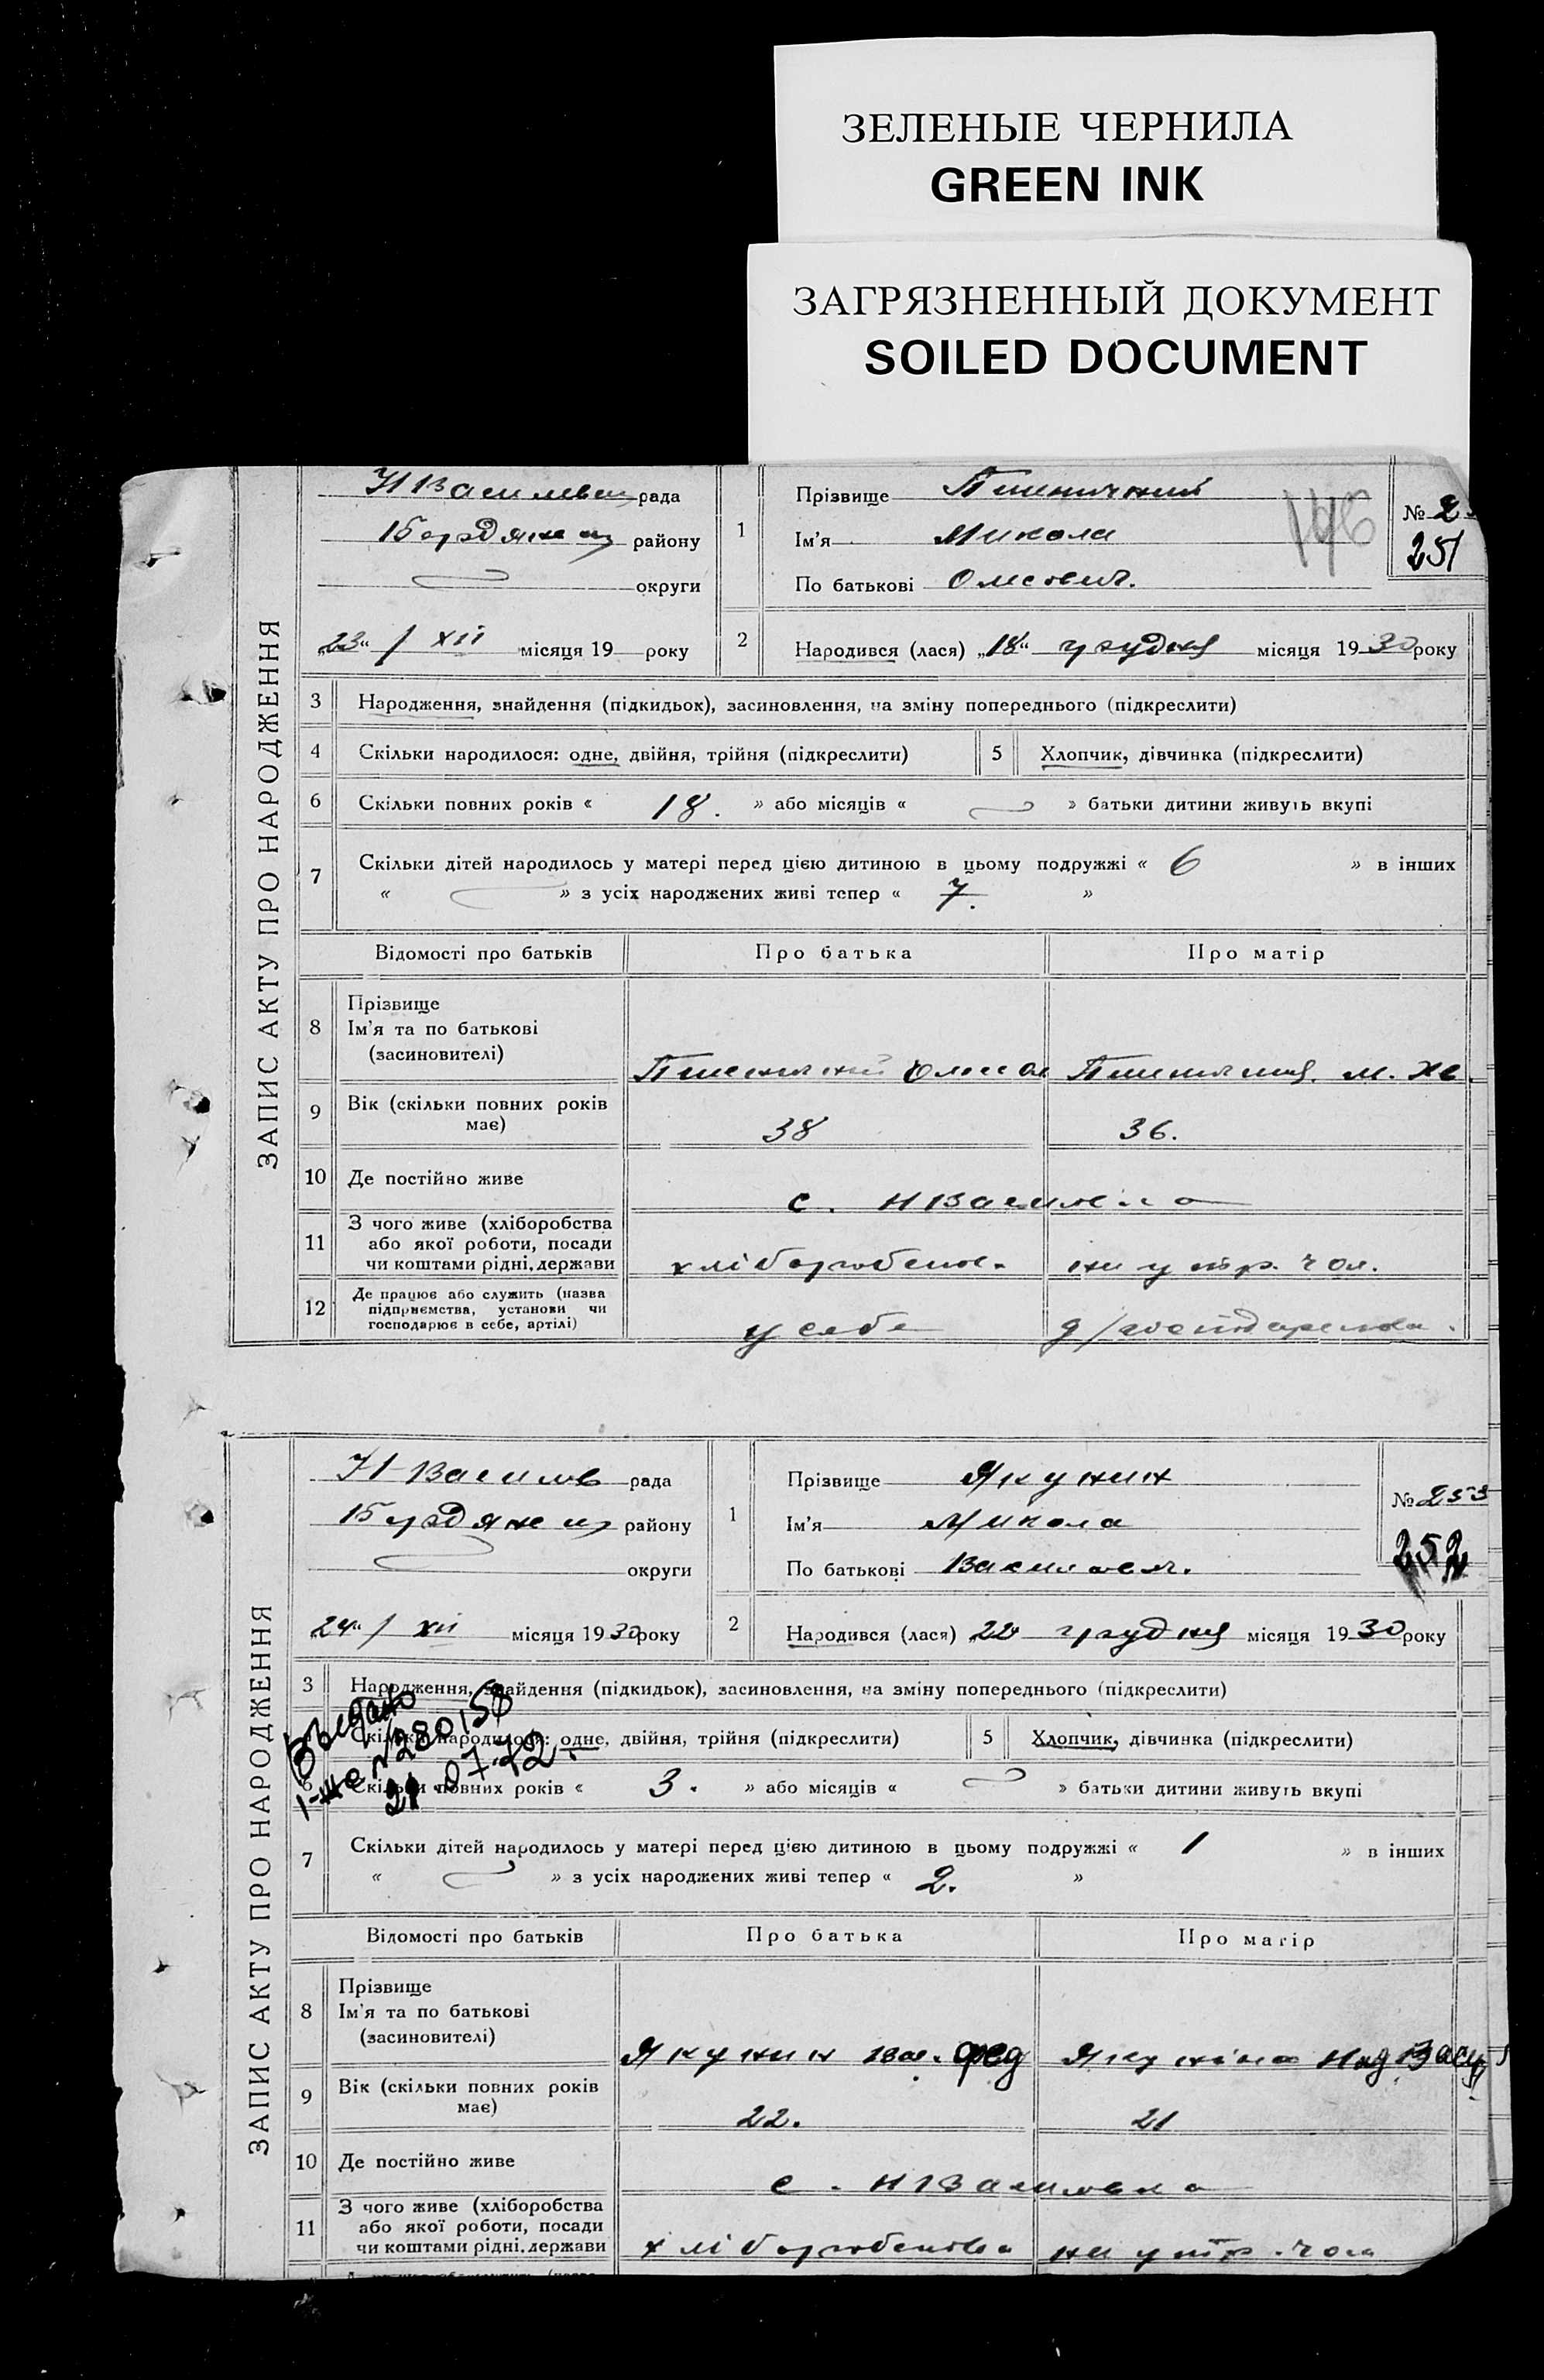 ЗЕЛЕНЫЕ ЧЕРНИЛА
GREEN INK
ЗАГРЯЗНЕННЫЙ ДОКУМЕНТ
SOILED DOCUMENT
ЗАПИС АКТУ ПРО НАРОДЖЕННЯ
рада
району
округи
„23“ / XII місяця 19 року
1
Прізвище
Ім'я Микола
По батькові
№ 2
251
2
Народився (лася) „18“ грудня місяця 1930 року
3 Народження, знайдення (підкидьок), засиновлення, на зміну попереднього (підкреслити)
4 Скільки народилося: одне, двійня, трійня (підкреслити) 5 Хлопчик, дівчинка (підкреслити)
6 Скільки повних років « 18. » або місяців « » батьки дитини живуть вкупі
7 Скільки дітей народилось у матері перед цією дитиною в цьому подружжі « 6 » в інших
« » з усіх народжених живі тепер « 7. »
Відомості про батьків Про батька Про матір
8 Прізвище
Ім'я та по батькові
(засиновителі)
9 Вік (скільки повних років має) 38 36.
10 Де постійно живе с. Н Василівка
11 З чого живе (хліборобства
або якої роботи, посади
чи коштами рідні, держави
на утр. чол.
12 Де працює або служить (назва
підприємства, установи чи
господарює в себе, артілі)
у себе
ЗАПИС АКТУ ПРО НАРОДЖЕННЯ
Н-Василів рада
району
округи
24“ / XII місяця 1930 року
1
Прізвище Якунин
Ім'я Микола
По батькові
№ 253
252
2
Народився (лася) 22 грудня місяця 1930 року
3 Народження, знайдення (підкидьок), засиновлення, на зміну попереднього (підкреслити)
Скільки народилося: одне, двійня, трійня (підкреслити) 5 Хлопчик, дівчинка (підкреслити)
6 Скільки повних років « 3. » або місяців « » батьки дитини живуть вкупі
21.07.72
7 Скільки дітей народилось у матері перед цією дитиною в цьому подружжі « 1 » в інших
« » з усіх народжених живі тепер « 2. »
Відомості про батьків Про батька Про матір
8 Прізвище
Ім'я та по батькові
(засиновителі)
Якунин Вас. Фед Якуніна Над Васил
9 Вік (скільки повних років має) 22. 21
10 Де постійно живе с. Н Василівка
11 З чого живе (хліборобства
або якої роботи, посади
чи коштами рідні, держави
на утр. чол